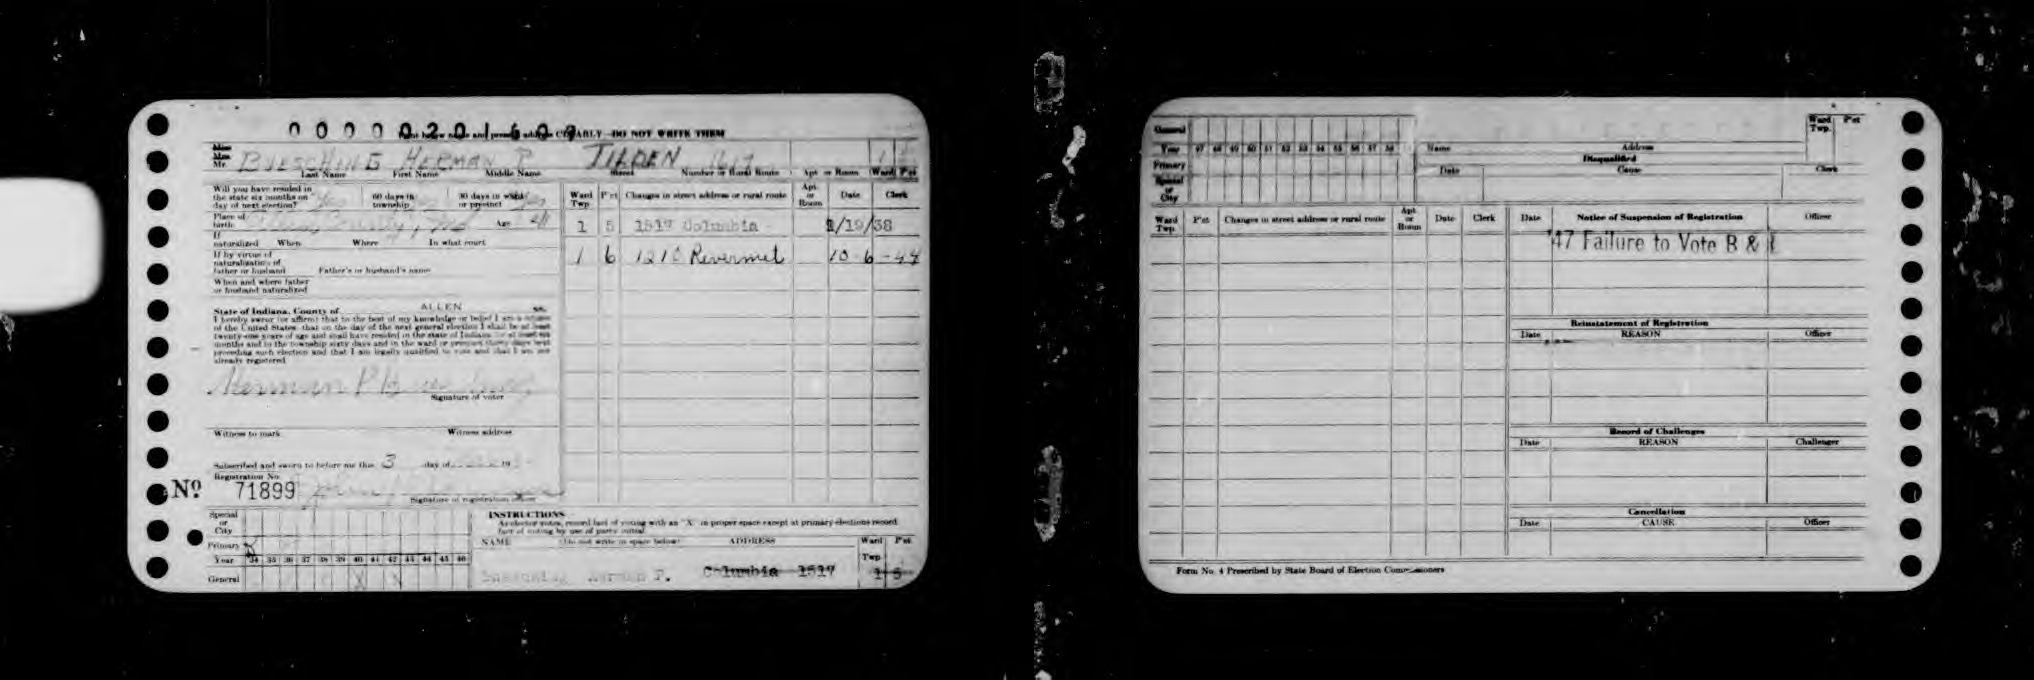 0000201609
Print below name and present address CLEARLY—DO NOT WRITE THEM
Miss
Mrs.
Mr. BUESCHING HERMAN P. TILDEN 1617 1
Last Name First Name Middle Name Street Number or Rural Route Apt. or Room Ward Pct
Will you have resided in the state six months on day of next election? Yes 60 days in township 30 days in ward or precinct Yes
Place of birth County, Ind Age
If naturalized When Where In what court
If by virtue of naturalization of father or husband Father's or husband's name
When and where father or husband naturalized
State of Indiana, County of ALLEN ss.
I hereby swear (or affirm) that to the best of my knowledge or belief I am a citizen
of the United States, that on the day of the next general election I shall be at least
twenty-one years of age and shall have resided in the state of Indiana for at least six
months and in the township sixty days and in the ward or precinct thirty days next
preceding such election and that I am legally qualified to vote and that I am not
already registered.
Herman P Buesching
Signature of voter
Witness to mark Witness address
Subscribed and sworn to before me this 3 day of 19
Registration No.
No. 71899
Signature of registration officer
Ward Twp. Pct Changes in street address or rural route Apt. or Room Date Clerk
1 5 1517 Columbia /19/38
1 6 1210 Rivermet 10-6-44
Special or City
Primary
Year 34 35 36 37 38 39 40 41 42 43 44 45 46
General X X
INSTRUCTIONS
As elector votes, record fact of voting with an "X" in proper space except at primary elections record
fact of voting by use of party initial.
NAME (Do not write in space below) ADDRESS Ward Twp. Pct
Buesching Herman P. Columbia 1517 1 5
General
Year 47 48 49 50 51 52 53 54 55 56 57 58
Primary
Special or City
Name Address Ward Twp. Pct
Disqualified
Date Cause Clerk
Ward Twp. Pct Changes in street address or rural route Apt. or Room Date Clerk
Date Notice of Suspension of Registration Officer
'47 Failure to Vote B & R
Reinstatement of Registration
Date REASON Officer
Record of Challenges
Date REASON Challenger
Cancellation
Date CAUSE Officer
Form No. 4 Prescribed by State Board of Election Commissioners